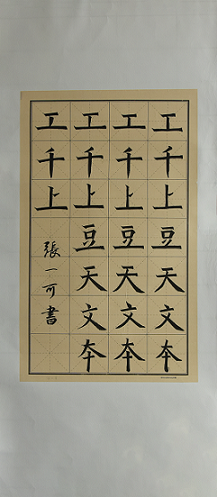 工千上豆天文本
工千上豆天文本
工千上豆天文本
工千上
張一可書